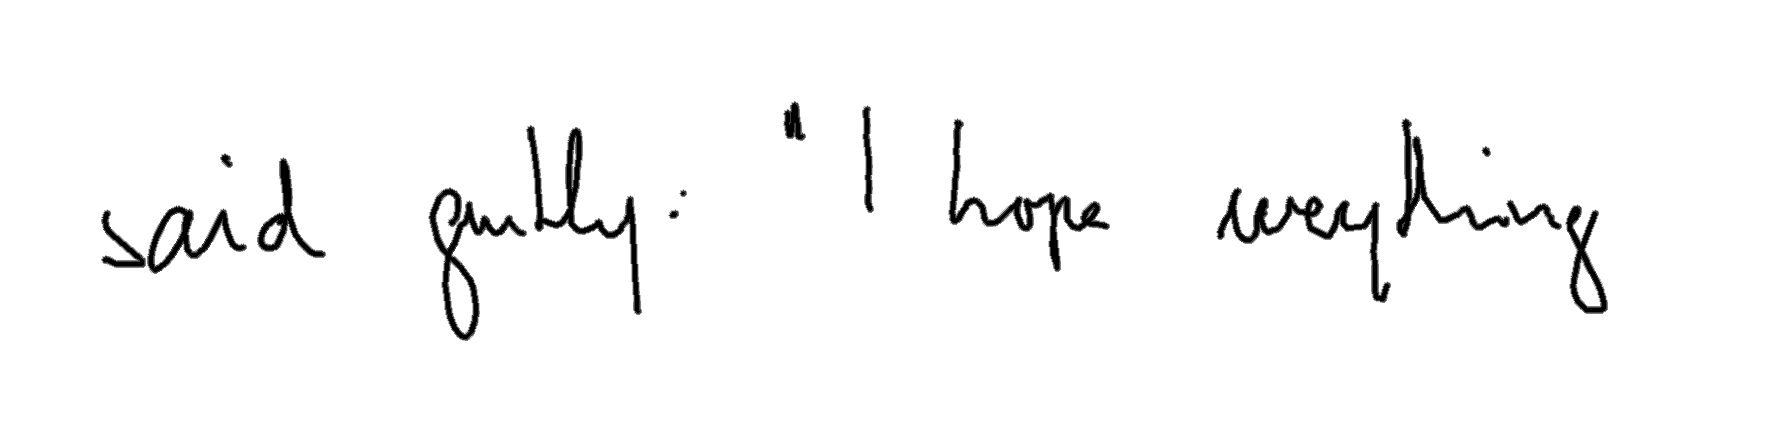 said gently: "I hope everything